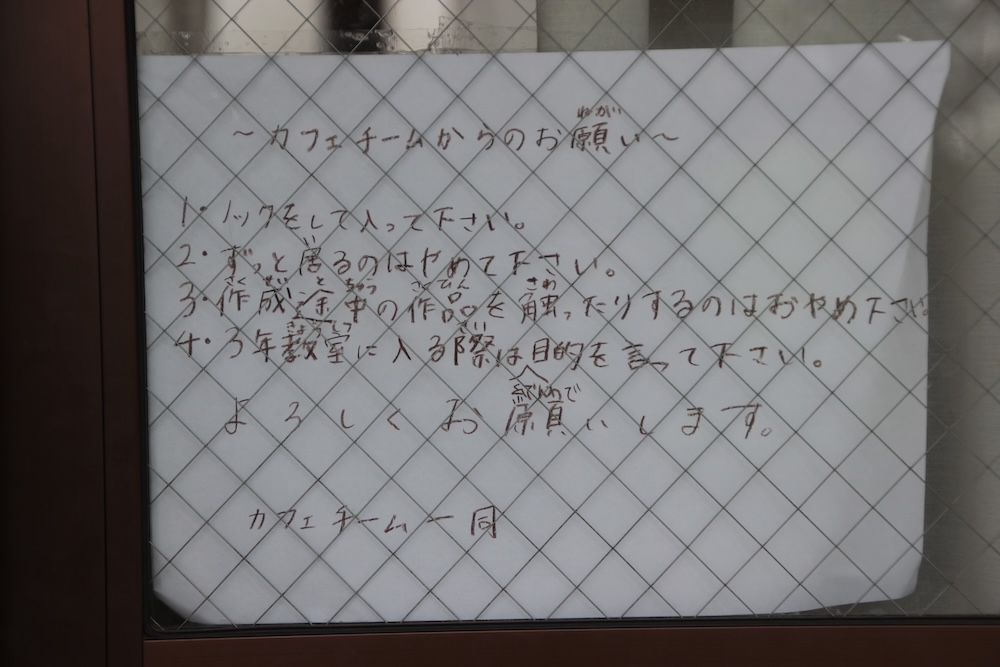 ～カフェチームからのお願い～
1.ノックをして入って下さい。
2.ずっと居るのはやめて下さい。
3.作成途中の作品を触ったりするのはおやめ下さい
4.3年教室に入る際は目的を言って下さい。
よろしくお願いします。
カフェチーム一同